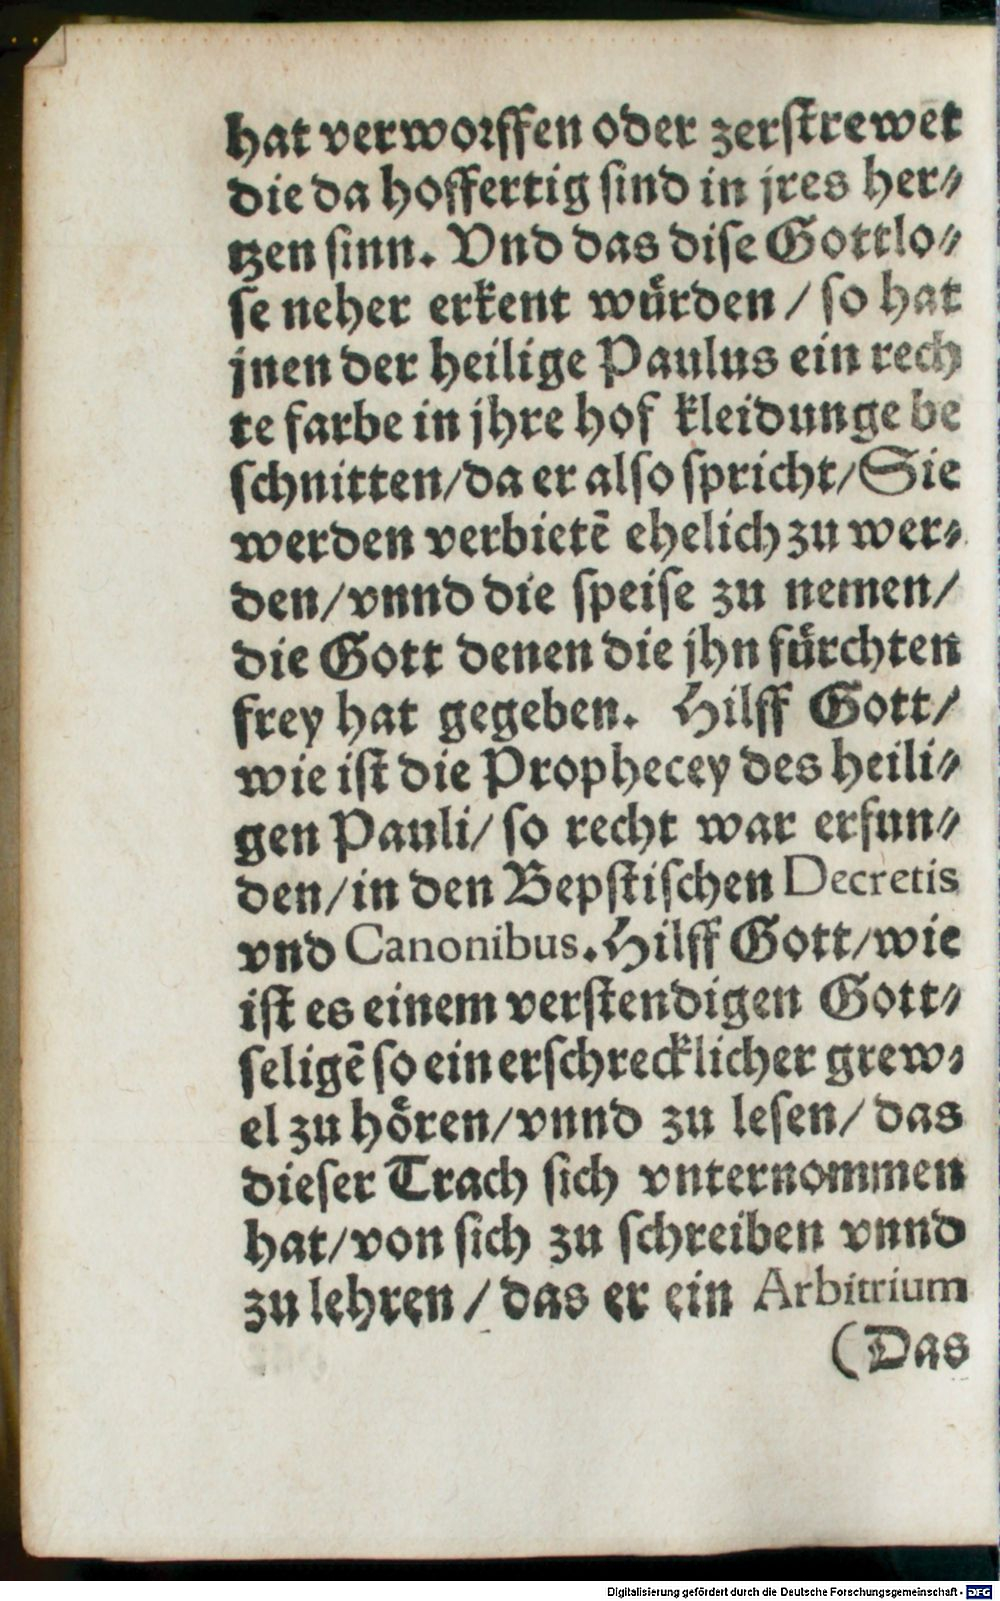 hat verworffen oder zerstrewet
die da hoffertig sind in jres her⸗
tzen sinn. Vnd das dise Gottlo⸗
se neher erkent wuͤrden / so hat
jnen der heilige Paulus ein rech
te farbe in jhre hof kleidunge be
schnitten/da er also spricht/Sie
werden verbietē ehelich zu wer⸗
den/vnnd die speise zu nemen/
die Gott denen die jhn fuͤrchten
frey hat gegeben. Hilff Gott/
wie ist die Prophecey des heili⸗
gen Pauli/ so recht war erfun⸗
den/in den Bepstischen Decretis
vnd Canonibus. Hilff Gott/wie
ist es einem verstendigen Gott⸗
seligē so ein erschrecklicher grew⸗
el zu hoͤren/vnnd zu lesen/ das
dieser Trach sich vnternommen
hat/von sich zu schreiben vnnd
zu lehren / das er ein Arbitrium
(Das
Digitalisierung gefördert durch die Deutsche Forschungsgemeinschaft - DFG